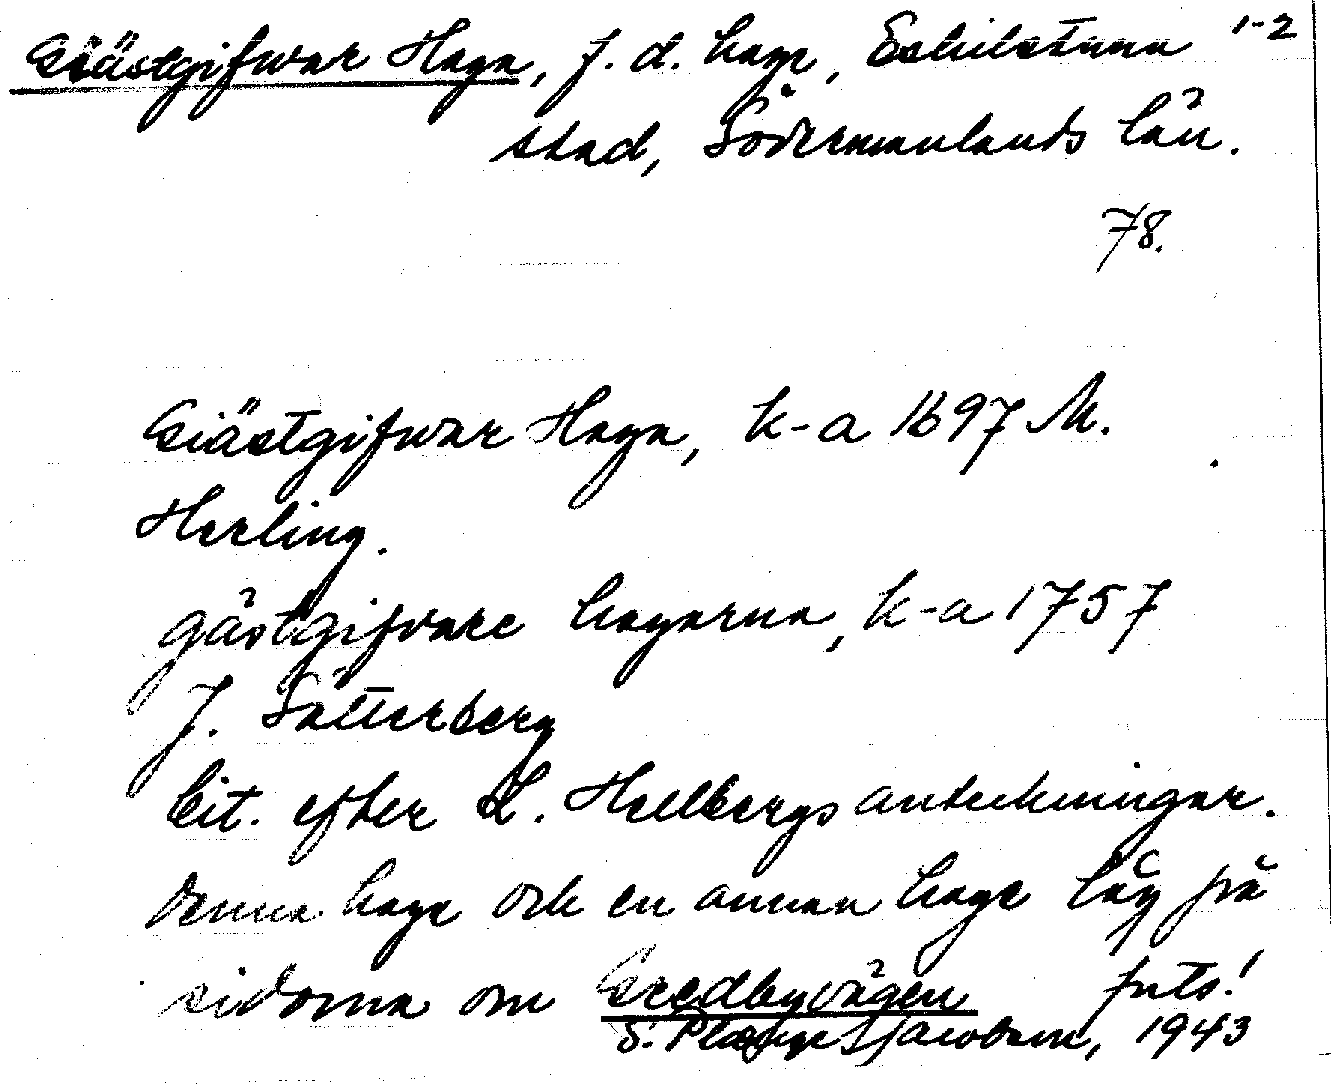 Giästgifwar Haga, f. d. hage, Eskilstuna 1-2
stad, Södermanlands län.
78.
Giästgifwar Haga, k-a 1697 M.
Herling.
gästgifvare hagarna, k-a 1757
J. Sätterberg
Cit. efter L. Hellbergs anteckningar.
denna hage och en annan hage låg på
sidorna om Gredbyvägen forts!
S. Jacobson, 1943